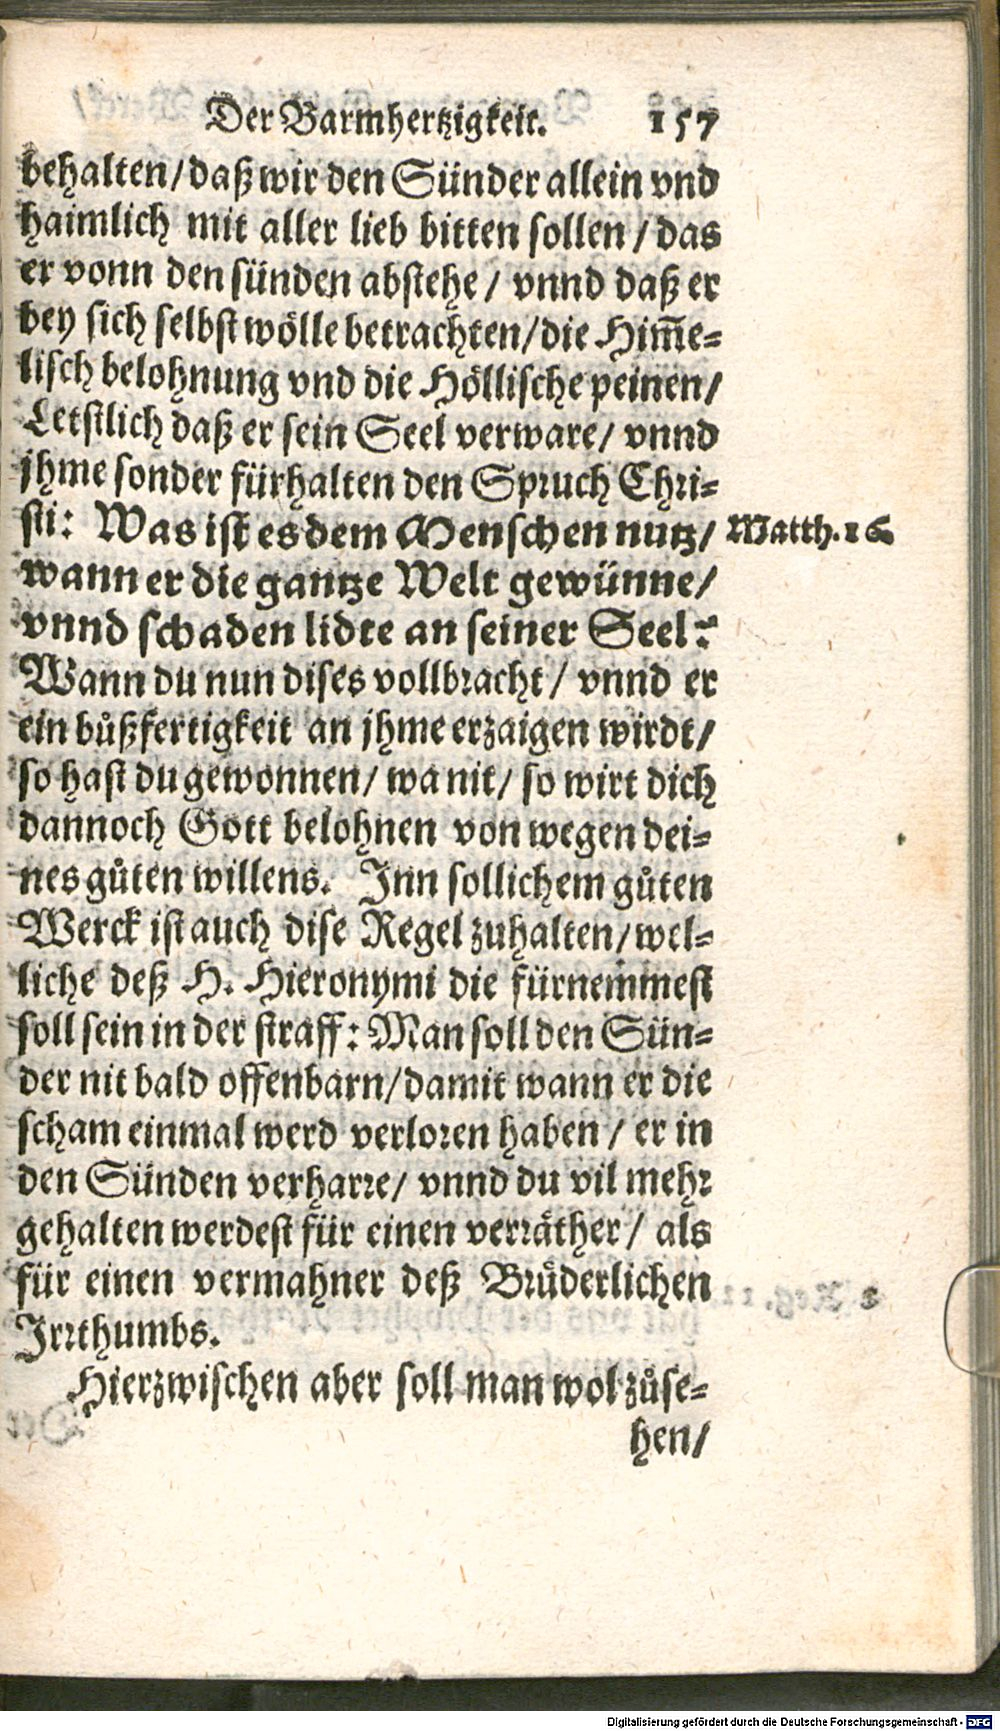 Der Barmhertzigkeit. 157
behalten/ daß wir den Sünder allein vnd
haimlich mit aller lieb bitten sollen / das
er vonn den sünden abstehe / vnnd daß er
bey sich selbst wölle betrachten/ die Him̅e-
lisch belohnung vnd die Höllische peinen/
Letstlich daß er sein Seel verware/ vnnd
jhme sonder fürhalten den Spruch Chri-
sti: Was ist es dem Menschen nutz/ Matth.16
wann er die gantze Welt gewünne/
vnnd schaden lidte an seiner Seel?
Wann du nun dises vollbracht / vnnd er
ein bůßfertigkeit an jhme erzaigen wirdt/
so hast du gewonnen/ wa nit/ so wirt dich
dannoch Gott belohnen von wegen dei-
nes gůten willens. Inn sollichem gůten
Werck ist auch dise Regel zuhalten/ wel-
liche deß H. Hieronymi die fürnemmest
soll sein in der straff: Man soll den Sün-
der nit bald offenbarn/ damit wann er die
scham einmal werd verloren haben / er in
den Sünden verharre/ vnnd du vil mehr
gehalten werdest für einen verräther/ als
für einen vermahner deß Brüderlichen
Irrthumbs.
Hierzwischen aber soll man wol zůse-
hen/
Digitalisierung gefördert durch die Deutsche Forschungsgemeinschaft - DFG